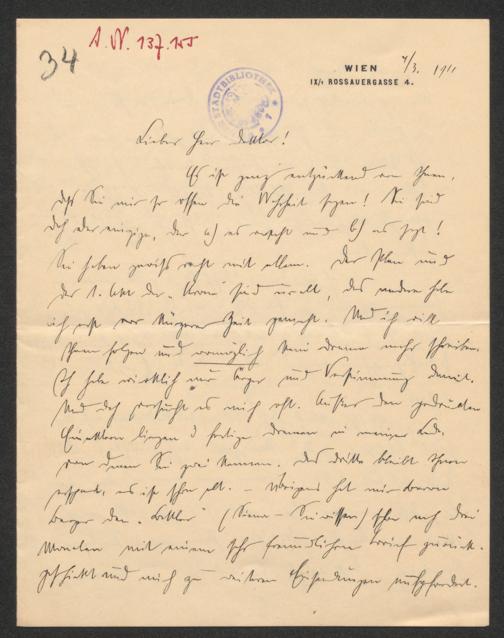 34
I. N. 137.155
STADTBIBLIOTHEK
WIEN
7/3. 1911
IX/1 ROSSAUERGASSE 4.
Lieber Herr Doktor!
Es ist ganz entzückend von Ihnen,
daß Sie mir so offen die Wahrheit sagen! Sie sind
doch der einzige, der a) es versteht und b) es sagt!
Sie haben gewiß recht mit allem. Der Plan und
der 1. Akt der sind uralt, das andere habe
ich erst vor kürzerer Zeit gemacht. Und ich will
Ihnen folgen und womöglich kein Drama mehr schreiben.
Ich habe wirklich nur Ärger und Verstimmung damit.
Und doch versucht es mich oft. Außer den gedruckten
Einaktern liegen 3 fertige Dramen in meiner Lade,
von denen Sie zwei kennen. Das dritte bleibt Ihnen
erspart, es ist schon alt. – Übrigens hat mir Baron
Berger den „Bettler" (Siena – Sie wissen) schon nach drei
Monaten mit einem sehr freundlichen Brief zurück-
geschickt und mich zu weiteren Einsendungen aufgefordert.